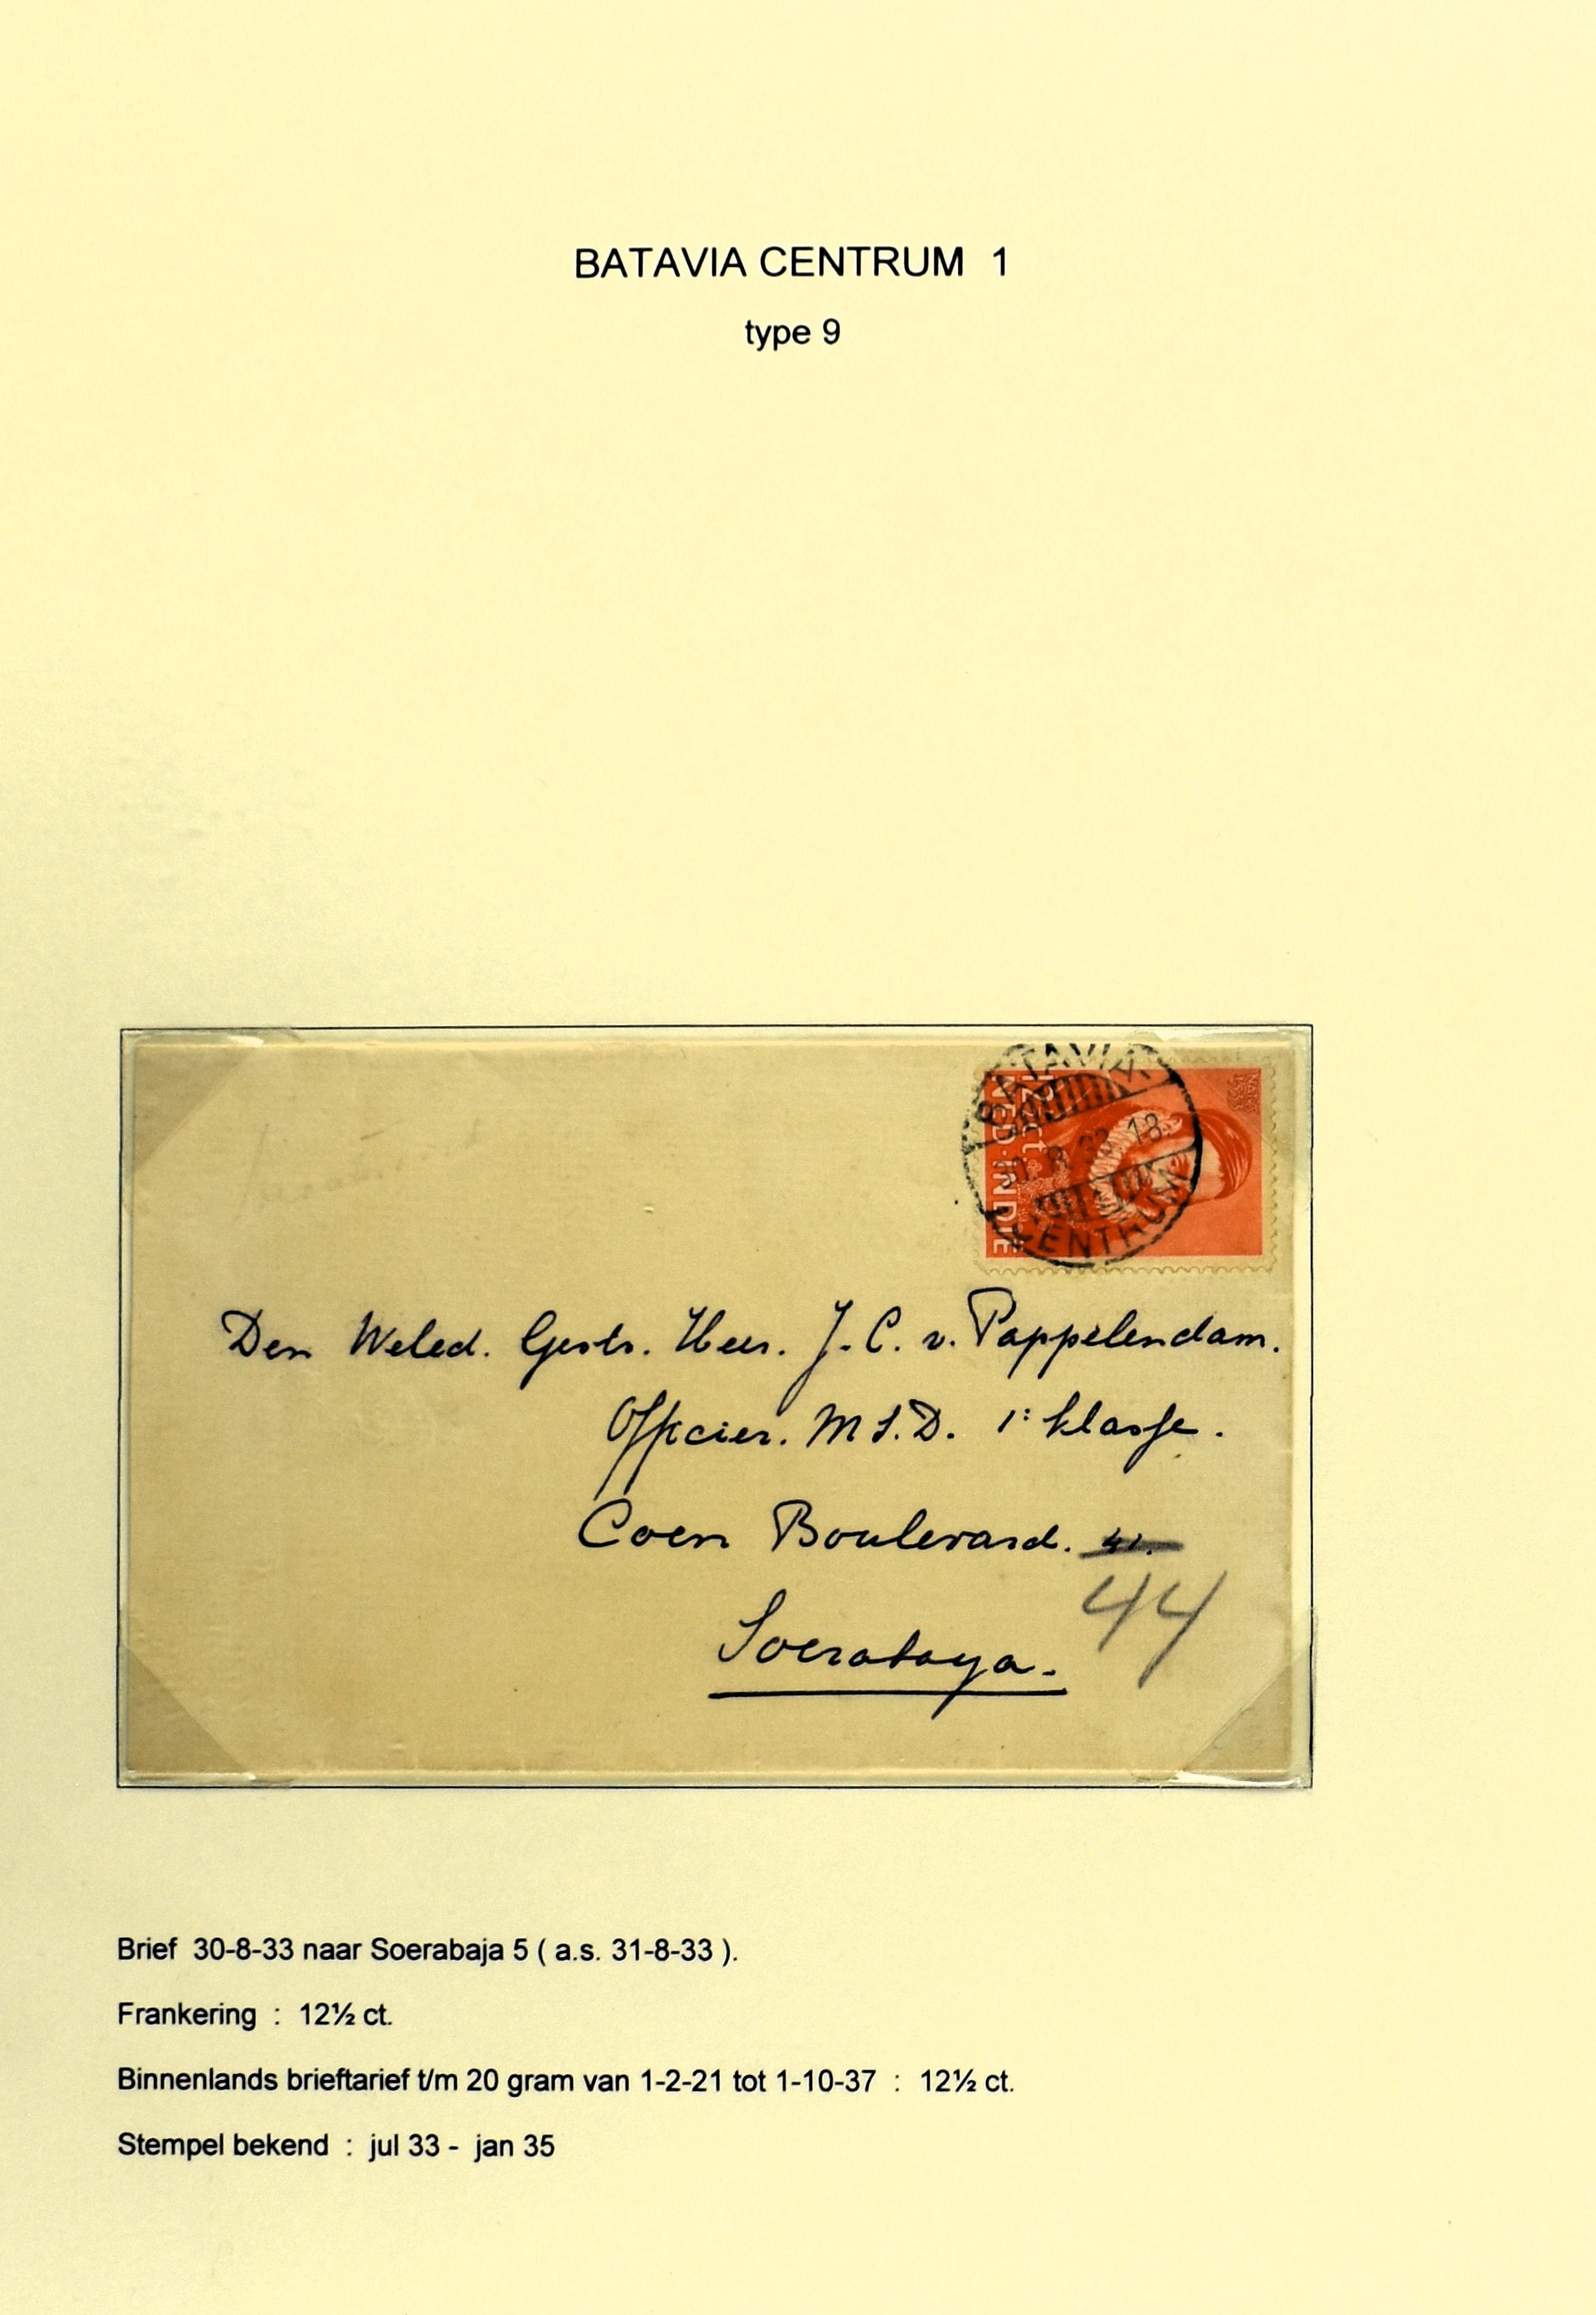 BATAVIA CENTRUM 1
type 9
BATAVIA
12½ ct.
NED·INDIE
30. 8. 33. 18.
CENTRUM
Den Weled. Gestr. Heer. J. C. v. Pappelendam.
Officier. M S. D. 1e klasse.
Coen Boulevard. 41.
44
Soerabaya.
Brief 30-8-33 naar Soerabaja 5 ( a.s. 31-8-33 ).
Frankering : 12½ ct.
Binnenlands brieftarief t/m 20 gram van 1-2-21 tot 1-10-37 : 12½ ct.
Stempel bekend : jul 33 - jan 35